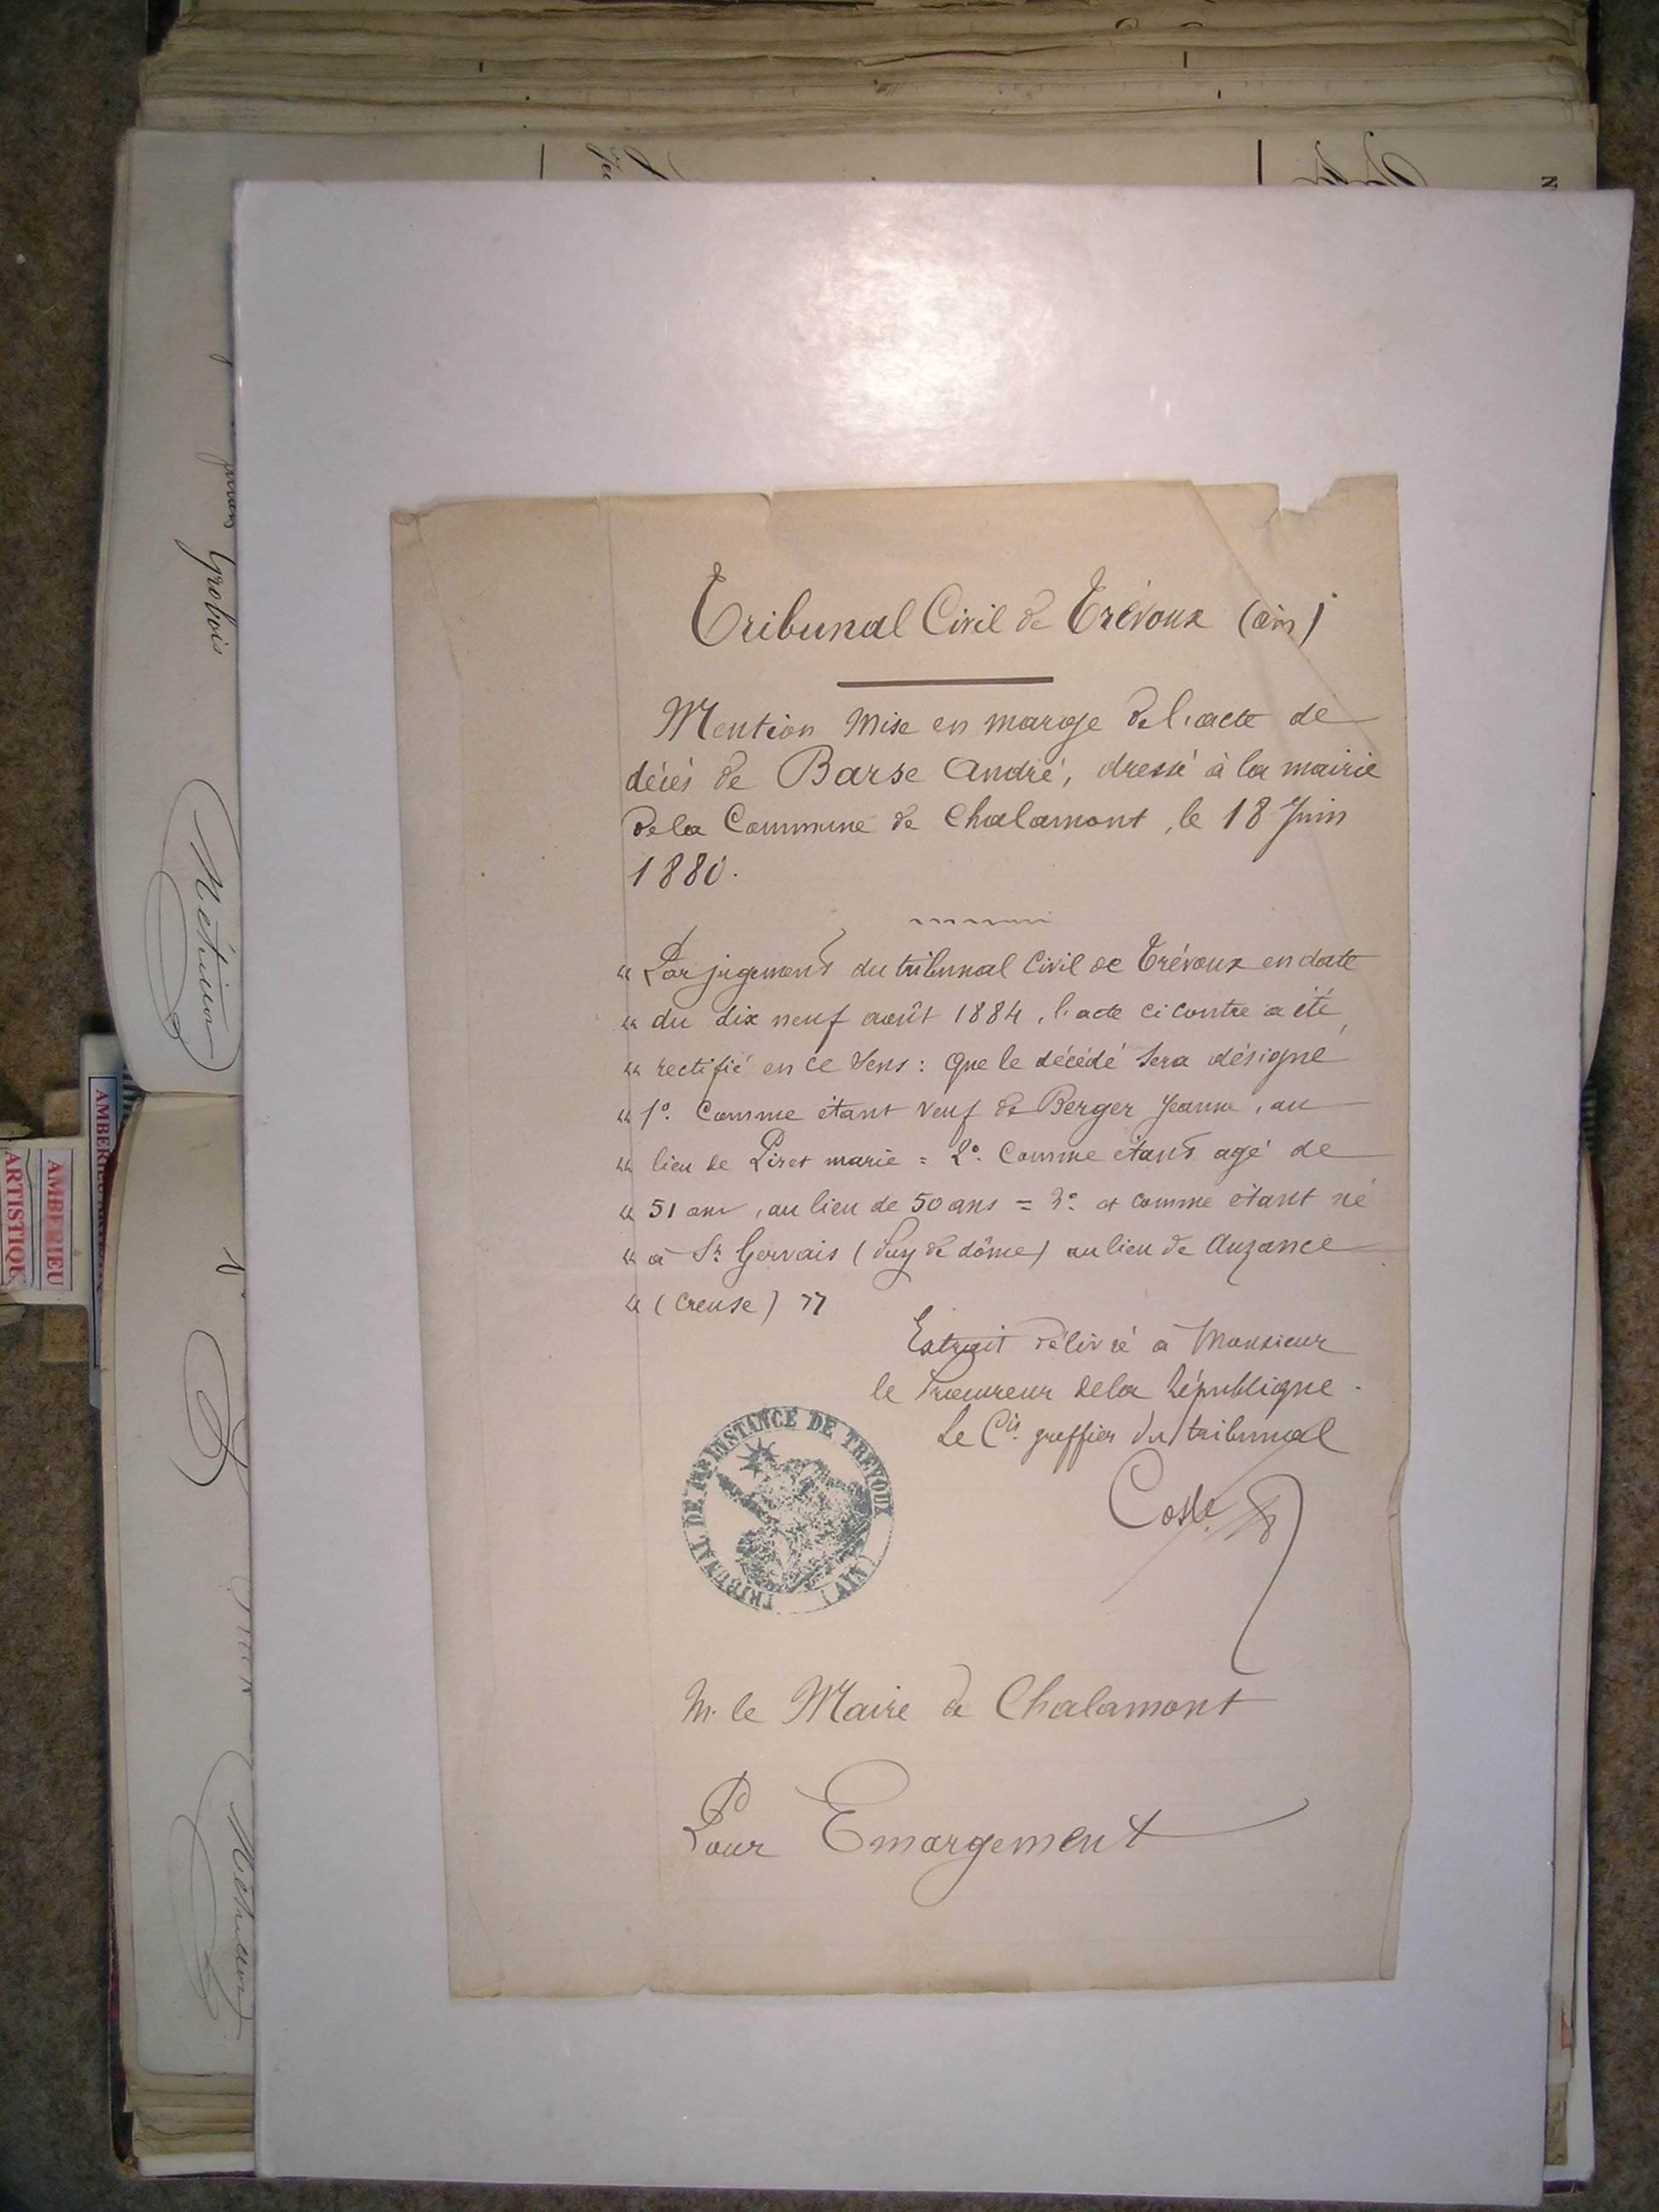 Tribunal Civil de Trévoux (ain)
Mention Mise en marge de l'acte de
décès de Barse André, dressé à la mairie
de la Commune de Chalamont, le 18 Juin
1880.
" Par jugement du tribunal Civil de Trévoux en date
" du dix neuf août 1884, l'acte ci contre a été
" rectifié en ce sens : que le décédé sera désigné
" 1º. Comme étant veuf de Berger Jeanne, au
" lieu de Piret marie = 2º. Comme étant agé de
" 51 ans, au lieu de 50 ans = 3º et comme étant né
" à St Gervais (Puy de dôme) au lieu de Auzance
" (Creuse) "
Extrait délivré à Monsieur
le Procureur de la République.
Le Cis greffier du tribunal
TRIBUNAL DE 1RE INSTANCE DE TREVOUX (AIN)
M. le Maire de Chalamont
Pour Emargement
Grobois
AMBERIEU
ARTISTIQUE